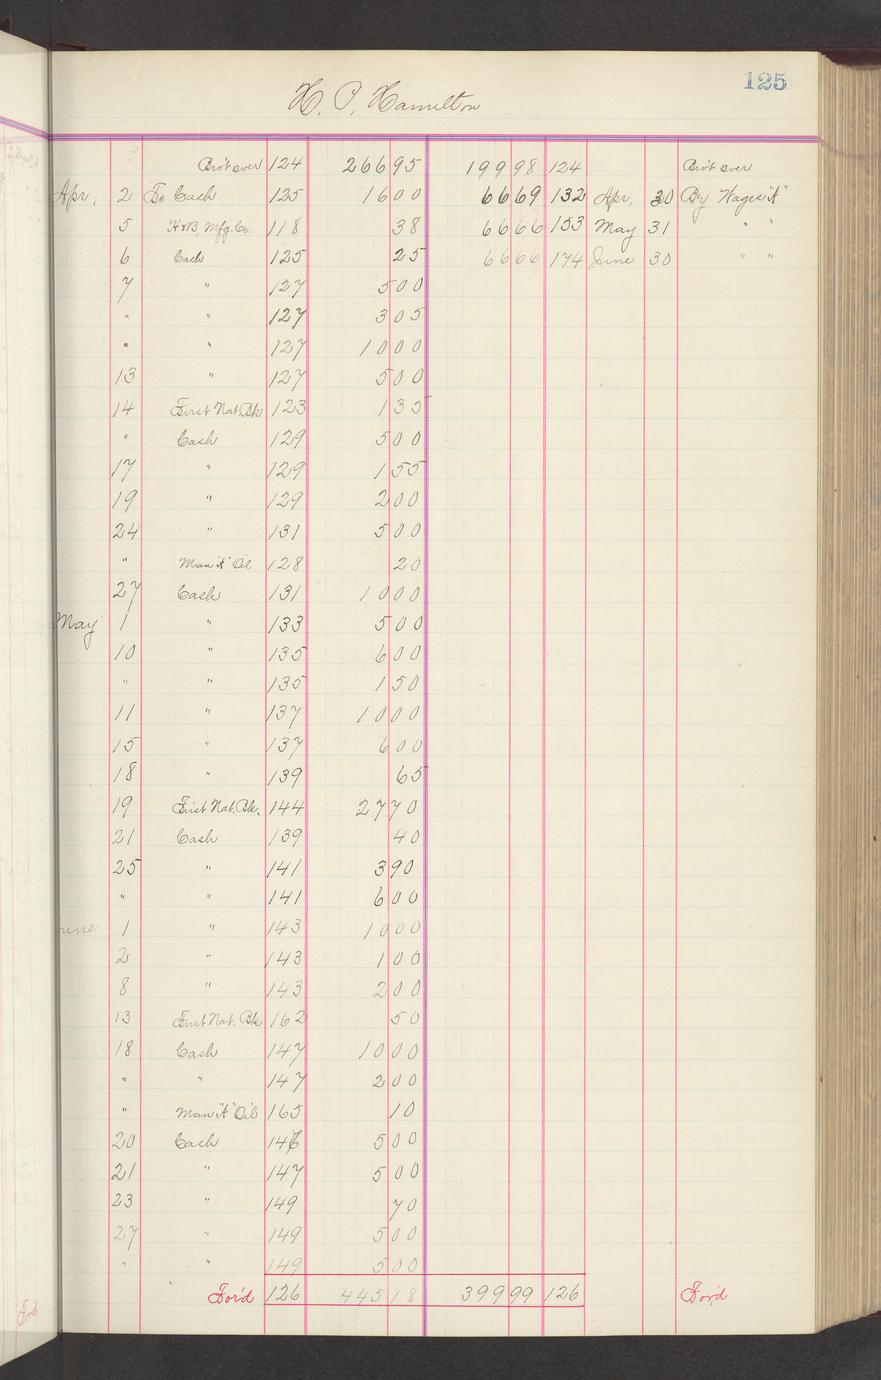 125
H. P. Hamilton
Bro't over 124 266 95 199 98 124 Bro't over
Apr. 2 To Cash 125 16 00 66 69 132 Apr. 30 By Wages "A"
5 H&B. Mfg. Co. 118 38 66 66 153 May 31 " "
6 Cash 125 25 66 66 174 June 30 " "
7 " 127 5 00
" " 127 3 05
" " 127 10 00
13 " 127 5 00
14 First Nat. Bk 123 1 35
" Cash 129 5 00
17 " 129 1 55
19 " 129 2 00
24 " 131 5 00
" Man "A" Oil 128 20
27 Cash 131 10 00
May 1 " 133 5 00
10 " 135 6 00
" " 135 1 50
11 " 137 10 00
15 " 137 6 00
18 " 139 65
19 First Nat. Bk. 144 27 70
21 Cash 139 40
25 " 141 3 90
" " 141 6 00
une 1 " 143 10 00
2 " 143 1 00
8 " 143 2 00
13 First Nat. Bk 162 50
18 Cash 147 10 00
" " 147 2 00
" Man "A" Oil 165 10
20 Cash 146 5 00
21 " 147 5 00
23 " 149 70
27 " 149 5 00
" " 149 5 00
For'd 126 445 18 399 99 126 For'd
For'd